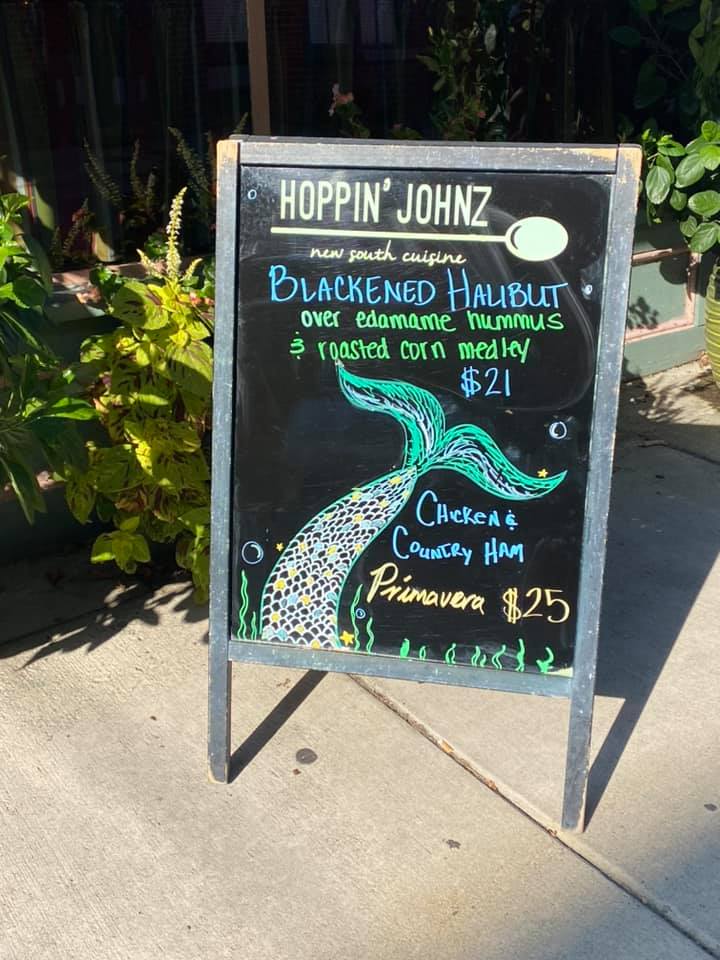 HOPPIN' JOHNZ
new south cuisine
BLACKENED HALIBUT
over edamame hummus
& roasted corn medley
$21
CHICKEN &
COUNTRY HAM
Primavera $25